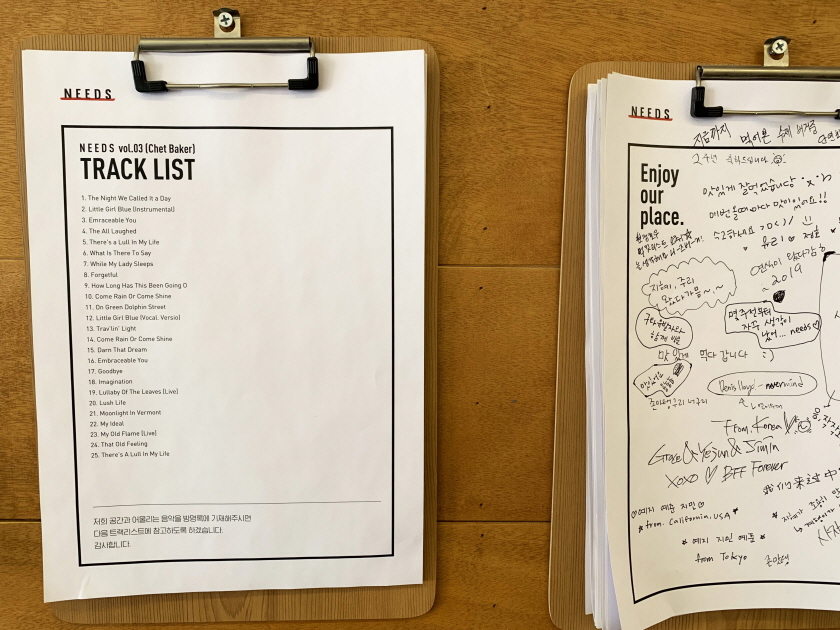 NEEDS
NEEDS vol.03 (Chet Baker)
TRACK LIST
1. The Night We Called It a Day
2. Little Girl Blue (Instrumental)
3. Emraceable You
4. The All Laughed
5. There's a Lull In My Life
6. What Is There To Say
7. While My Lady Sleeps
8. Forgetful
9. How Long Has This Been Going O
10. Come Rain Or Come Shine
11. On Green Dolphin Street
12. Little Girl Blue (Vocal. Versio)
13. Trav'lin' Light
14. Come Rain Or Come Shine
15. Darn That Dream
16. Embraceable You
17. Goodbye
18. Imagination
19. Lullaby Of The Leaves (Live)
20. Lush Life
21. Moonlight In Vermont
22. My Ideal
23. My Old Flame (Live)
24. That Old Feeling
25. There's A Lull In My Life
저희 공간과 어울리는 음악을 방명록에 기재해주시면
다음 트랙리스트에 참고하도록 하겠습니다.
감사합니다.
NEEDS
지금까지 먹어본 수제 버거중
Enjoy
our
place.
맛있게 잘먹었습니다
매번 올때마다 맛이있어요!!
수고하세요
유리 ♡ 재호
2019
지혜, 주리
왔다가용~,~
몇주전부터
자주 생각이
났어... needs ♡
맛있게 먹다 갑니다 :)
Denis Lloyd - nevermind
From. Korea
Grace & Yejun & Jimin
XOXO ♡ BFF Forever
예지 예준 지민
from. California, USA
예지 지인 예준
from Tokyo